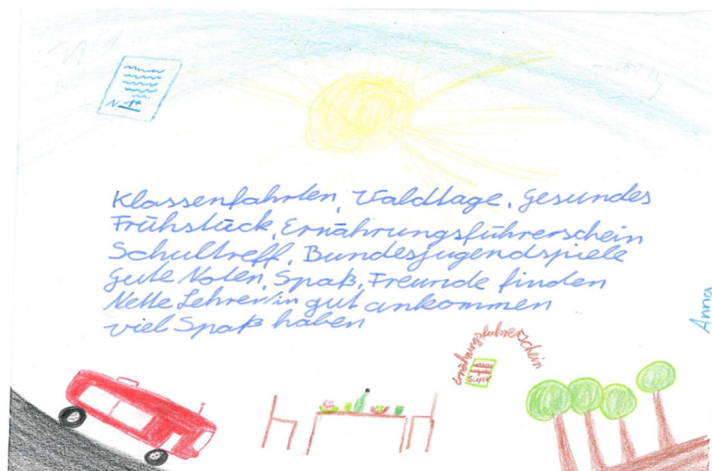 N 1+
Klassenfahrten, Waldtage, gesundes
Frühstück, Ernährungsführerschein
Schultreff, Bundesjugendspiele
gute Noten, Spaß, Freunde finden
Nette Lehrer/in gut ankommen
viel Spaß haben
Ernährungsführerschein
SUPER
Anna